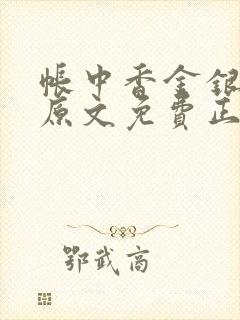 帳中香金銀
原文免費正
鄂武高